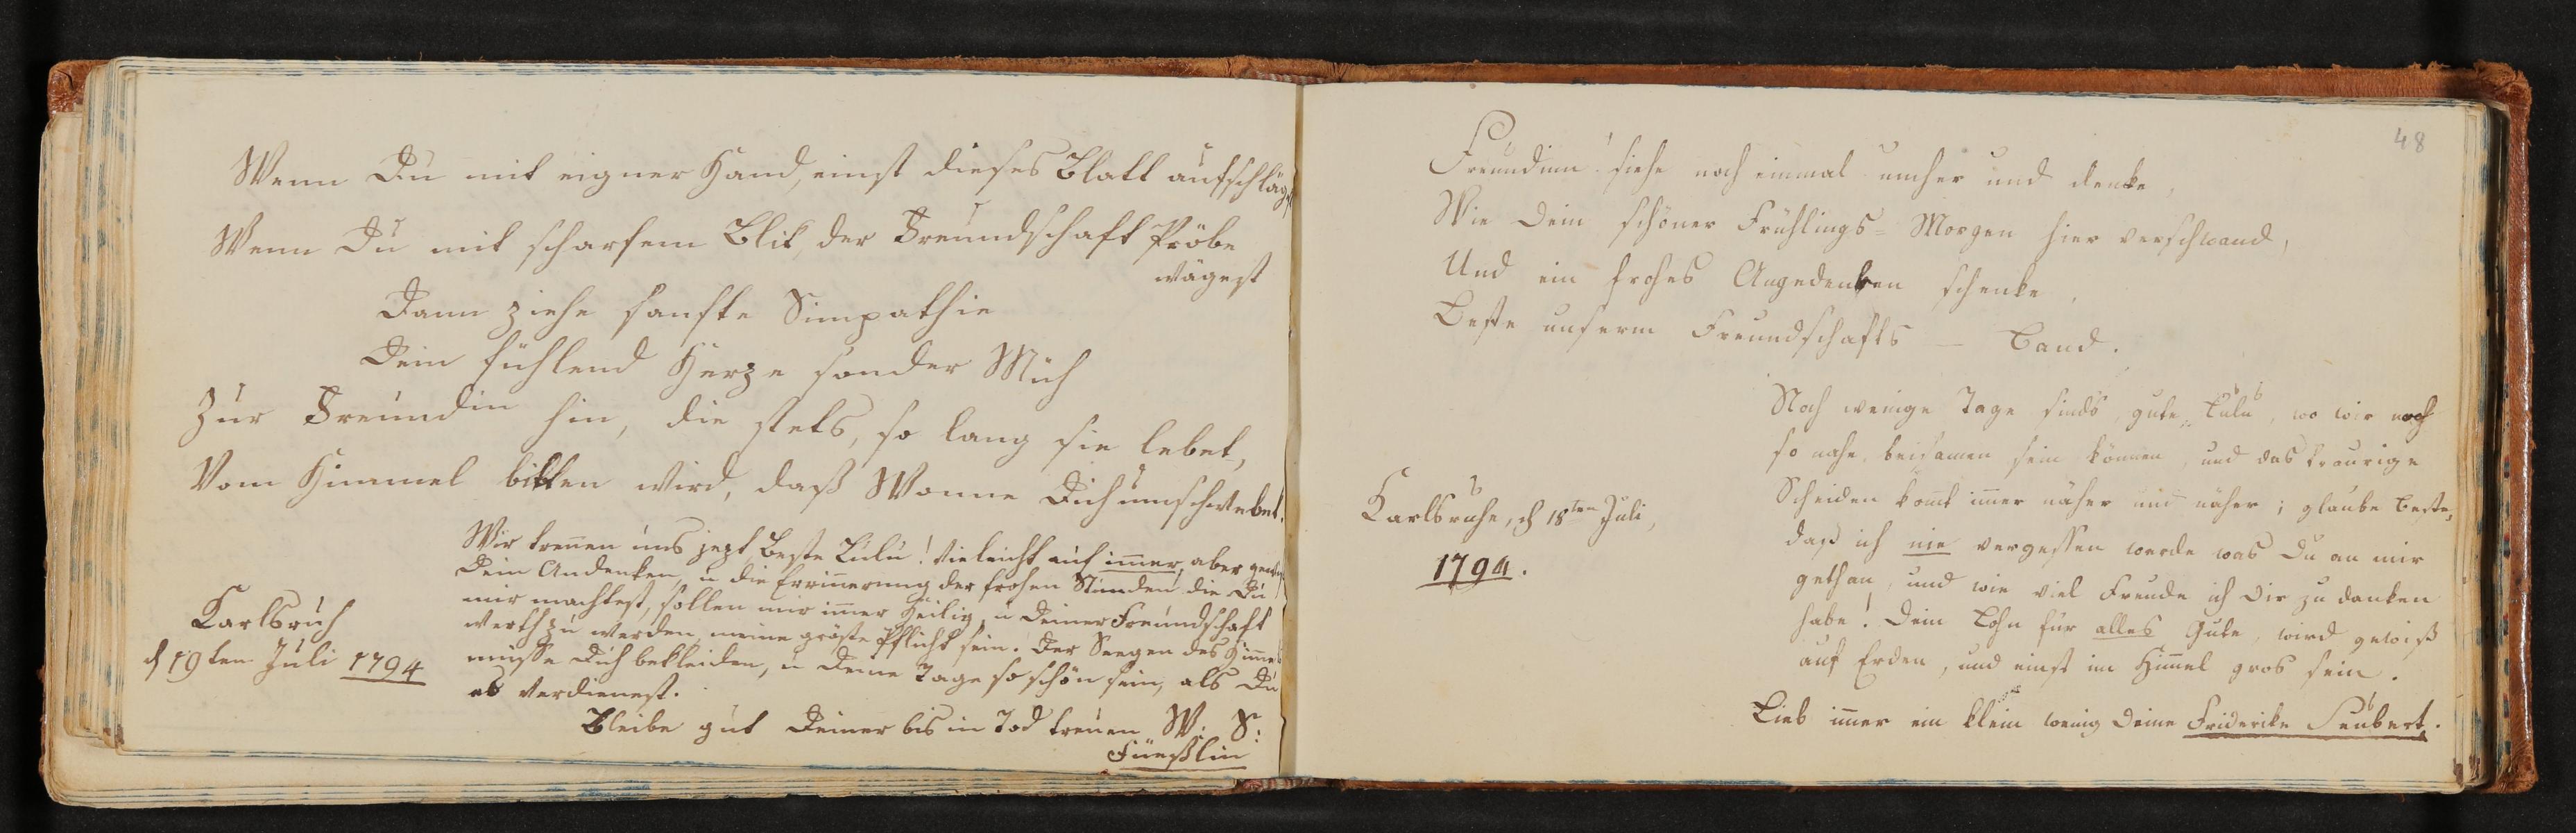 Wenn Du mit eigner Hand, einst dieses Blatt aufschlägst
Wenn Du mit scharfem Blik, der Freundschaft Pröbe
wägest
Dann ziehe sanfte Simpathie
Dein fühlend Herze sonder Müh
Zur Freundin hin, die stets, so lang sie lebet,
Vom Himmel bitten wird, daß Wonne Dich umschwebet.
Wir trennen uns jezt beste Lulu! vieleicht auf im̄er, aber
Dein Andenken, u die Errin̄erung der frohen Stunden die Du
mir machtest, sollen mir im̄er Heilig, u Deiner Freundschaft
werth zu werden, meine gröste Pflicht sein. Der Seegen des Him̄els
müsse Dich bekleiden, u Deine Tage so schön sein, als Du
es verdienest.
Karlsruh
d 19ten Juli 1794
Bleibe gut Deiner bis in Tod treuen W: S:
Füeßlin
48
Freundinn! siehe noch einmal umher und denke,
Wie Dein schöner Frühlings-Morgen hier verschwand,
Und ein frohes Angedenken schenke,
Beste unserm Freundschafts – Band.
Noch wenige Tage sinds, gute Lulu, wo wir noch
so nahe beisamen sein können, und das traurige
Scheiden kom̄t im̄er näher und näher; glaube Beste,
daß ich nie vergessen werde was Du an mir
gethan, und wie viel Freude ich Dir zu danken
habe! Dein Lohn für alles Gute, wird gewiß
auf Erden, und einst im Him̄el gros sein.
Karlsruhe, d 18ten Juli,
1794.
Lieb im̄er ein klein wenig Deine Friderike Seubert.